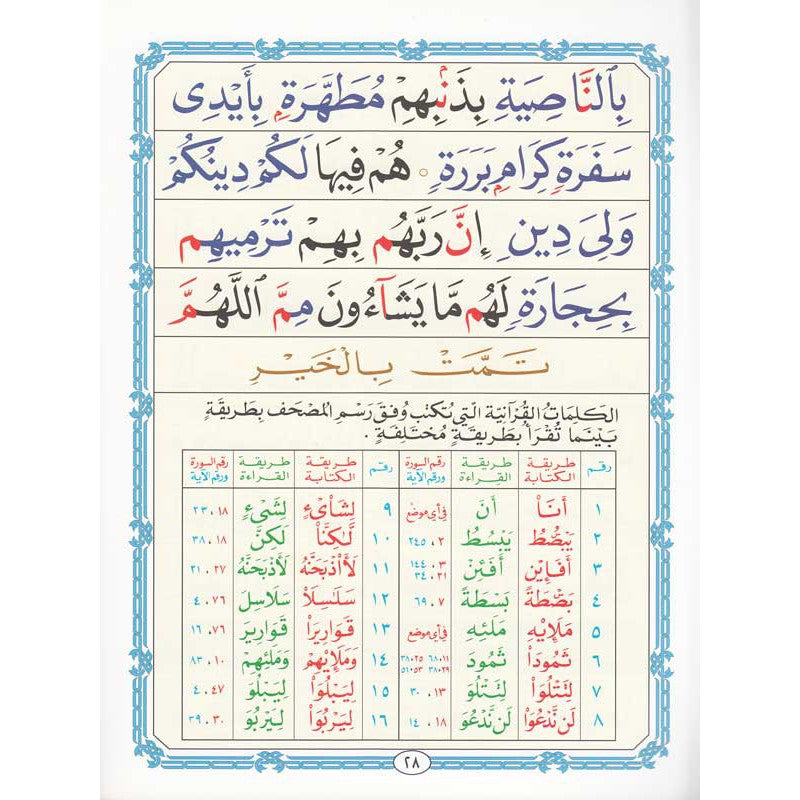 بِالنَّاصِيَةِ بِذَنْبِهِمْ مُطَهَّرَةٍ بِأَيْدِى
سَفَرَةٍ كِرَامٍ بَرَرَةٍ ۰ هُمْ فِيهَا لَكُمْ دِينُكُمْ
وَلِىَ دِينِ إِنَّ رَبَّهُم بِهِمْ تَرْمِيهِم
بِحِجَارَةٍ لَهُم مَّا يَشَآءُونَ مِمَّ اللَّهُمَّ
تَمَّتْ بِالْخَيْرِ
الكَلِمَاتُ القُرْآنِيَة الَّتِي تُكتَبُ وُفقَ رَسْمِ المُصْحَف بِطَرِيقَةٍ
بَيْنَمَا تُقْرَأُ بِطَرِيقَةٍ مُخْتَلِفَةٍ .
رقم طريقة الكتابة طريقة القراءة رقم السورة ورقم الآية رقم طريقة الكتابة طريقة القراءة رقم السورة ورقم الآية
١ أَنَا۠ أَنَ في أي موضع ٩ لِشَا۟ىْءٍ لِشَىْءٍ ١٨، ٢٣
٢ يَبْصُۜطُ يَبْسُطُ ٢، ٢٤٥ ١٠ لَّٰكِنَّا۠ لَٰكِنَّ ١٨، ٣٨
٣ أَفَإِي۟ن أَفَئِنْ ٣، ١٤٤ ٢١، ٣٤ ١١ لَأَا۟ذْبَحَنَّهُ لَأَذْبَحَنَّهُ ٢٧، ٢١
٤ بَصْۜطَةً بَسْطَةً ٧، ٦٩ ١٢ سَلَٰسِلَا۟ سَلَاسِلَ ٧٦، ٤
٥ مَلَإِي۟هِ مَلَئِهِ في أي موضع ١٣ قَوَارِيرَا۟ قَوَارِيرَ ٧٦، ١٦
٦ ثَمُودَا۟ ثَمُودَ ١١، ٦٨ ٢٥، ٣٨ ٢٩، ٣٨ ٥٣، ٥١ ١٤ وَمَلَإِي۟هِمْ وَمَلَئِهِمْ ١٠، ٨٣
٧ لِتَتْلُوَا۟ لِتَتْلُوَ ١٣، ٣٠ ١٥ لِيَبْلُوَا۟ لِيَبْلُوَ ٤٧، ٤
٨ لَن نَّدْعُوَا۟ لَن نَّدْعُوَ ١٨، ١٤ ١٦ لِيَرْبُوَا۟ لِيَرْبُوَ ٣٠، ٣٩
٢٨